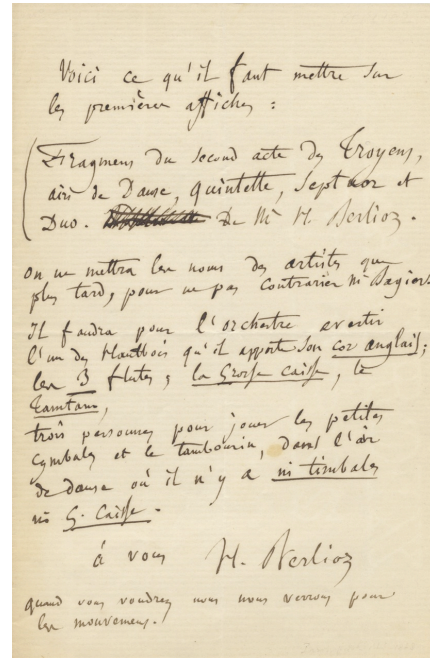 Voici ce qu'il faut mettre sur
les premières affiches :
Fragmens du second acte des Troyens,
airs de Danse, quintette, Septuor et
Duo. De Mr H. Berlioz.
on ne mettra les noms des artistes que
plus tard, pour ne pas contrarier Mr Bagier.
Il faudra pour l'orchestre avertir
l'un des Hautbois qu'il apporte son cor anglais;
les 3 flutes, la Grosse caisse, le
Tamtam,
trois personnes pour jouer les petites
cymbales et le tambourin, dans l'air
de danse où il n'y a ni timbales
ni G. Caisse.
à vous H. Berlioz
quand vous voudrez nous nous verrons pour
les mouvemens.